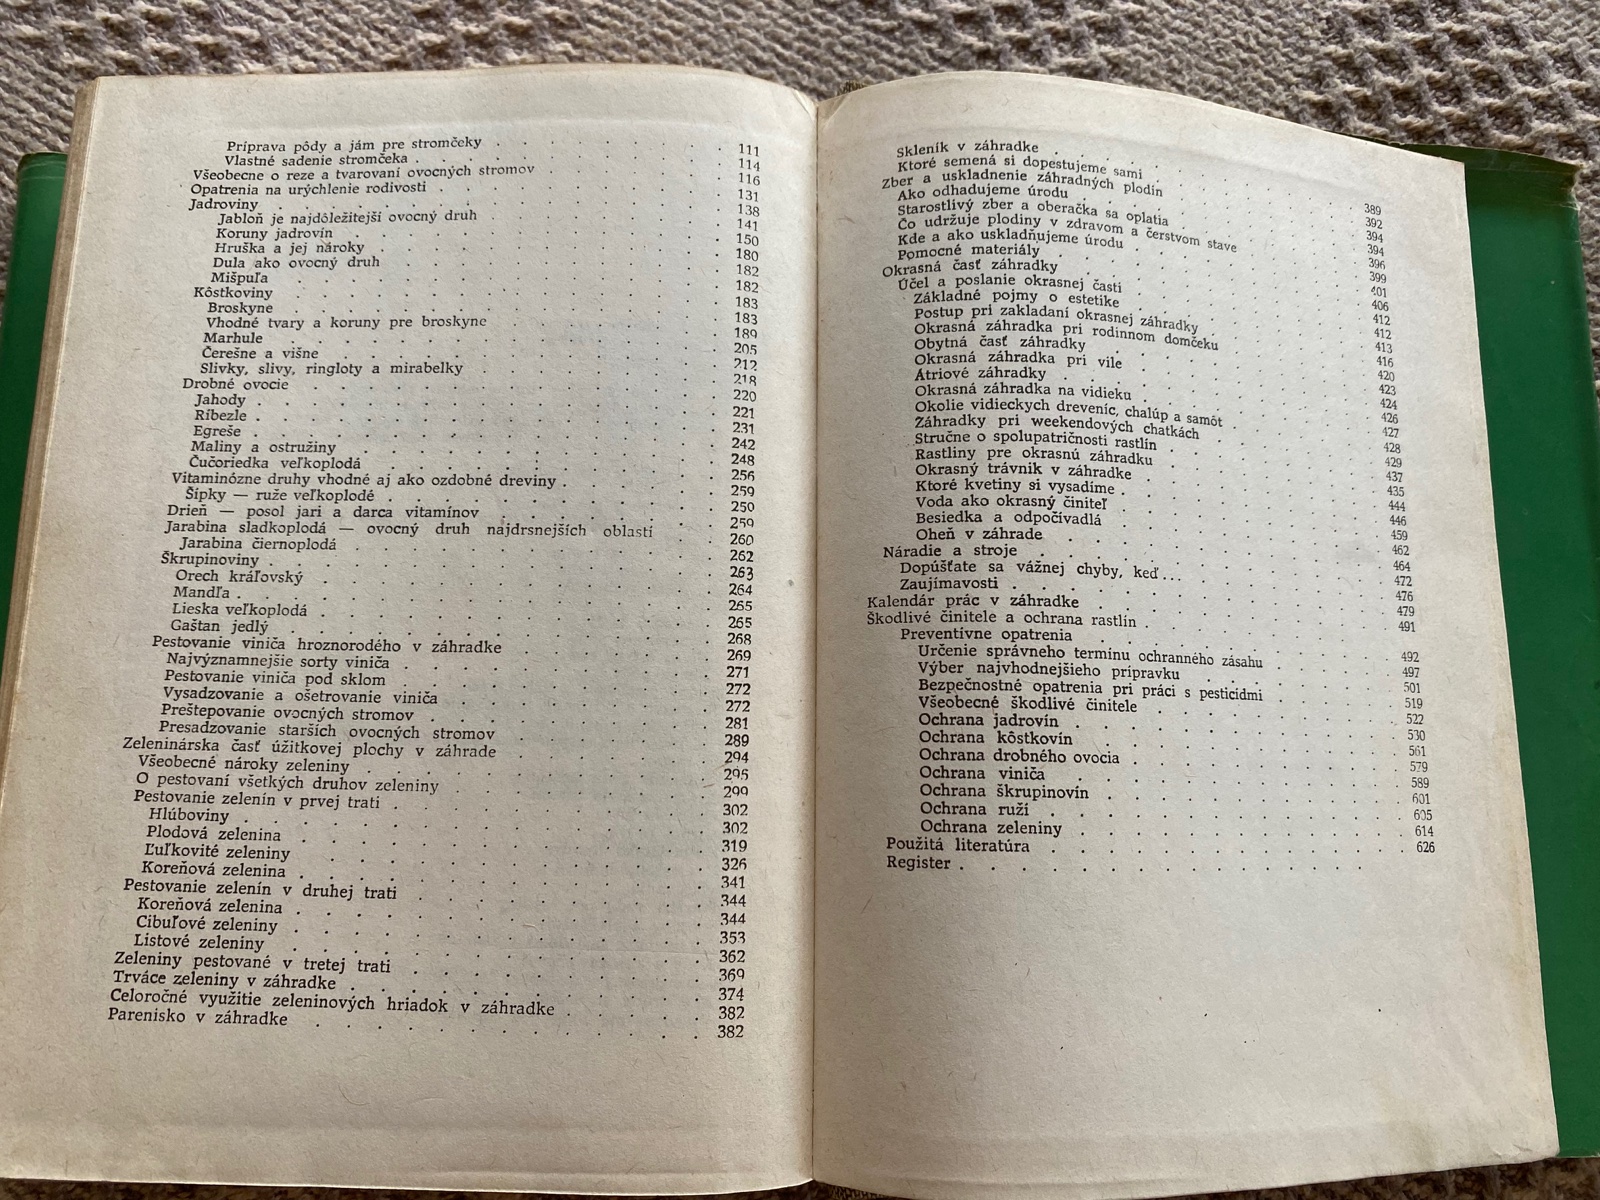 Príprava pôdy a jám pre stromčeky . . . . . . . . 111
Vlastné sadenie stromčeka . . . . . . . . 114
Všeobecne o reze a tvarovaní ovocných stromov . . . . . . . . 116
Opatrenia na urýchlenie rodivosti . . . . . . . . 131
Jadroviny . . . . . . . . 138
Jabloň je najdôležitejší ovocný druh . . . . . . . . 141
Koruny jadrovín . . . . . . . . 150
Hruška a jej nároky . . . . . . . . 180
Dula ako ovocný druh . . . . . . . . 182
Mišpuľa . . . . . . . . 182
Kôstkoviny . . . . . . . . 183
Broskyne . . . . . . . . 183
Vhodné tvary a koruny pre broskyne . . . . . . . . 189
Marhule . . . . . . . . 205
Čerešne a višne . . . . . . . . 212
Slivky, slivy, ringloty a mirabelky . . . . . . . . 218
Drobné ovocie . . . . . . . . 220
Jahody . . . . . . . . 221
Ríbezle . . . . . . . . 231
Egreše . . . . . . . . 242
Maliny a ostružiny . . . . . . . . 248
Čučoriedka veľkoplodá . . . . . . . . 256
Vitaminózne druhy vhodné aj ako ozdobné dreviny . . . . . . . . 259
Šípky — ruže veľkoplodé . . . . . . . . 250
Drieň — posol jari a darca vitamínov . . . . . . . . 259
Jarabina sladkoplodá — ovocný druh najdrsnejších oblastí . . 260
Jarabina čiernoplodá . . . . . . . . 262
Škrupinoviny . . . . . . . . 263
Orech kráľovský . . . . . . . . 264
Mandľa . . . . . . . . 265
Lieska veľkoplodá . . . . . . . . 265
Gaštan jedlý . . . . . . . . 268
Pestovanie viniča hroznorodého v záhradke . . . . . . . . 269
Najvýznamnejšie sorty viniča . . . . . . . . 271
Pestovanie viniča pod sklom . . . . . . . . 272
Vysadzovanie a ošetrovanie viniča . . . . . . . . 272
Preštepovanie ovocných stromov . . . . . . . . 281
Presadzovanie starších ovocných stromov . . . . . . . . 289
Zeleninárska časť úžitkovej plochy v záhrade . . . . . . . . 294
Všeobecné nároky zeleniny . . . . . . . . 295
O pestovaní všetkých druhov zeleniny . . . . . . . . 299
Pestovanie zelenín v prvej trati . . . . . . . . 302
Hlúboviny . . . . . . . . 302
Plodová zelenina . . . . . . . . 319
Ľuľkovité zeleniny . . . . . . . . 326
Koreňová zelenina . . . . . . . . 341
Pestovanie zelenín v druhej trati . . . . . . . . 344
Koreňová zelenina . . . . . . . . 344
Cibuľové zeleniny . . . . . . . . 353
Listové zeleniny . . . . . . . . 362
Zeleniny pestované v tretej trati . . . . . . . . 369
Trváce zeleniny v záhradke . . . . . . . . 374
Celoročné využitie zeleninových hriadok v záhradke . . . . . . . . 382
Parenisko v záhradke . . . . . . . . 382
Skleník v záhradke . . . . . . . . 389
Ktoré semená si dopestujeme sami . . . . . . . . 392
Zber a uskladnenie záhradných plodín . . . . . . . . 394
Ako odhadujeme úrodu . . . . . . . . 394
Starostlivý zber a oberačka sa oplatia . . . . . . . . 396
Čo udržuje plodiny v zdravom a čerstvom stave . . . . . . . . 399
Kde a ako uskladňujeme úrodu . . . . . . . . 401
Pomocné materiály . . . . . . . . 406
Okrasná časť záhradky . . . . . . . . 412
Účel a poslanie okrasnej časti . . . . . . . . 412
Základné pojmy o estetike . . . . . . . . 413
Postup pri zakladaní okrasnej záhradky . . . . . . . . 416
Okrasná záhradka pri rodinnom domčeku . . . . . . . . 420
Obytná časť záhradky . . . . . . . . 423
Okrasná záhradka pri vile . . . . . . . . 424
Átriové záhradky . . . . . . . . 426
Okrasná záhradka na vidieku . . . . . . . . 427
Okolie vidieckych dreveníc, chalúp a samôt . . . . . . . . 428
Záhradky pri weekendových chatkách . . . . . . . . 429
Stručne o spolupatričnosti rastlín . . . . . . . . 437
Rastliny pre okrasnú záhradku . . . . . . . . 435
Okrasný trávnik v záhradke . . . . . . . . 444
Ktoré kvetiny si vysadíme . . . . . . . . 446
Voda ako okrasný činiteľ . . . . . . . . 459
Besiedka a odpočívadlá . . . . . . . . 462
Oheň v záhrade . . . . . . . . 464
Náradie a stroje . . . . . . . . 472
Dopúšťate sa vážnej chyby, keď... . . . . . . . . 476
Zaujímavosti . . . . . . . . 479
Kalendár prác v záhradke . . . . . . . . 491
Škodlivé činitele a ochrana rastlín . . . . . . . .
Preventívne opatrenia . . . . . . . . 492
Určenie správneho termínu ochranného zásahu . . . . . . . . 497
Výber najvhodnejšieho prípravku . . . . . . . . 501
Bezpečnostné opatrenia pri práci s pesticídmi . . . . . . . . 519
Všeobecné škodlivé činitele . . . . . . . . 522
Ochrana jadrovín . . . . . . . . 530
Ochrana kôstkovín . . . . . . . . 561
Ochrana drobného ovocia . . . . . . . . 579
Ochrana viniča . . . . . . . . 589
Ochrana škrupinovín . . . . . . . . 601
Ochrana ruží . . . . . . . . 605
Ochrana zeleniny . . . . . . . . 614
Použitá literatúra . . . . . . . . 626
Register . . . . . . . .